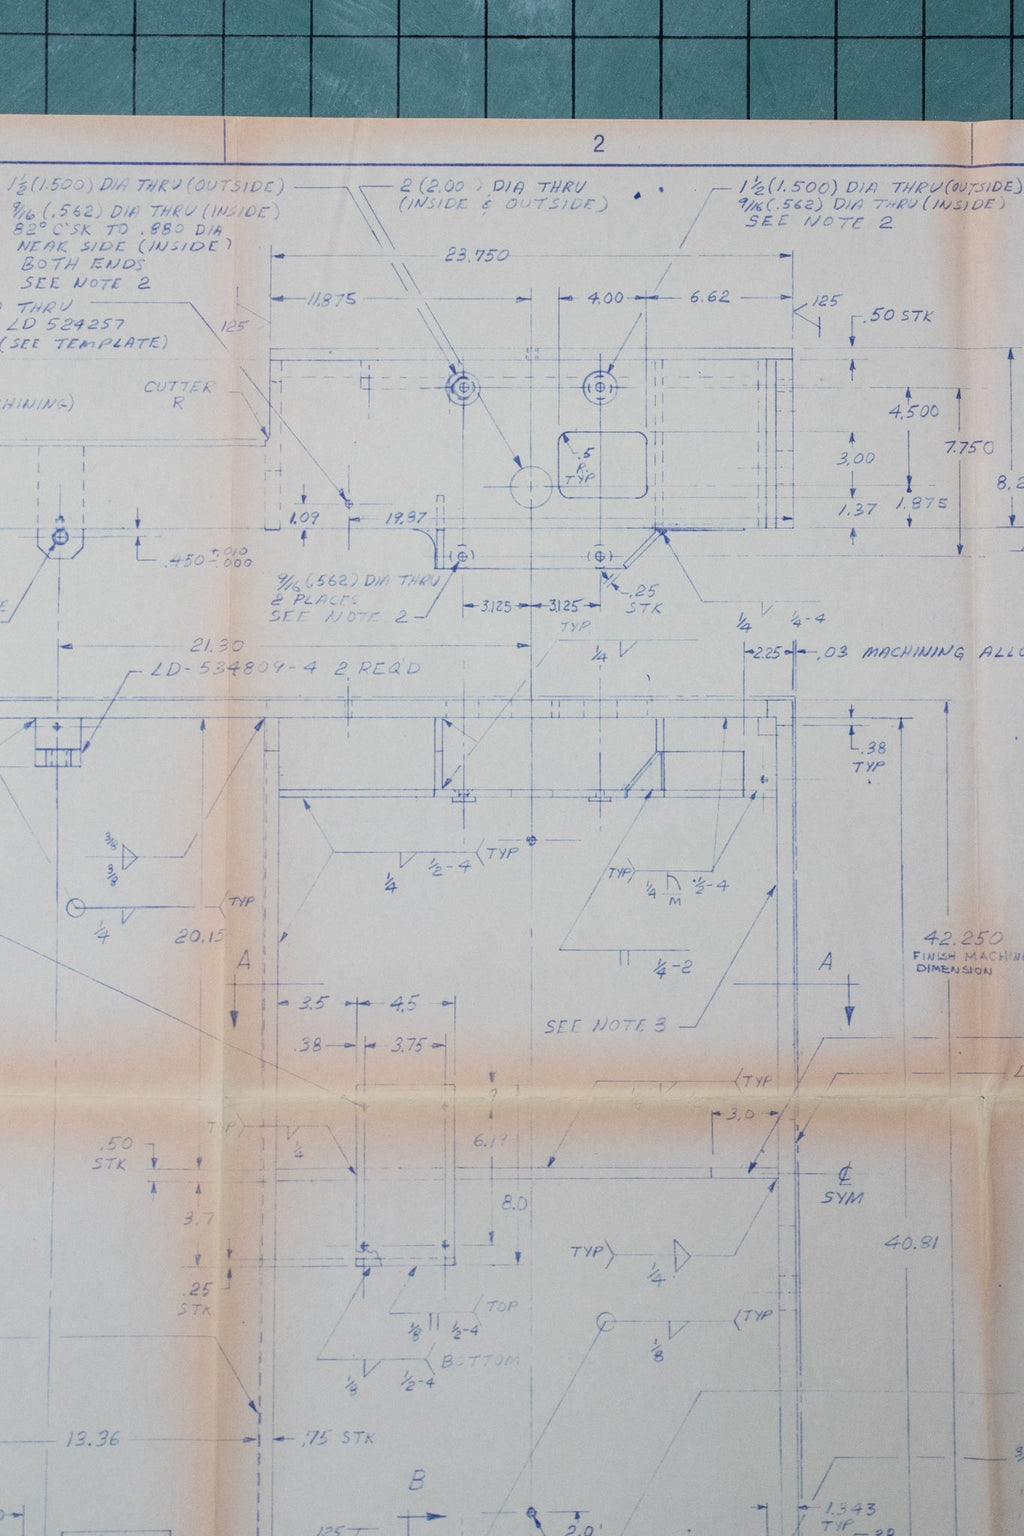 2
1½ (1.500) DIA THRU (OUTSIDE)
9/16 (.562) DIA THRU (INSIDE)
82° C'SK TO .880 DIA
NEAR SIDE (INSIDE)
BOTH ENDS
SEE NOTE 2
THRU
LD 524257
(SEE TEMPLATE)
2 (2.00 ) DIA THRU
(INSIDE & OUTSIDE)
1½ (1.500) DIA THRU (OUTSIDE)
9/16 (.562) DIA THRU (INSIDE)
SEE NOTE 2
23.750
11.875
4.00
6.62
125
125
.50 STK
CUTTER
R
4.500
7.750
3.00
1.37
1.875
.5
R.
TYP
1.09
19.87
.450 +.010
-.000
9/16 (.562) DIA THRU
2 PLACES
SEE NOTE 2
3.125
3.125
TYP
.25
STK
1/4
1/4-4
1/4
21.30
LD-534809-4 2 REQ'D
2.25
.03 MACHINING
.38
TYP
3/8
3/8
1/4
TYP
20.15
1/4
1/2-4
TYP
TYP
1/4
M
1/2-4
1/4-2
42.250
FINISH
DIMENSION
A
A
3.5
4.5
.38
3.75
SEE NOTE 3
TYP
3.0
TYP
1/4
6.19
8.0
.50
STK
3.7
.25
STK
℄
SYM
40.81
TYP
1/4
TYP
1/8
1/8
1/2-4
TOP
1/8
1/2-4
BOTTOM
13.36
.75 STK
B
1.343
TYP
125
2.0